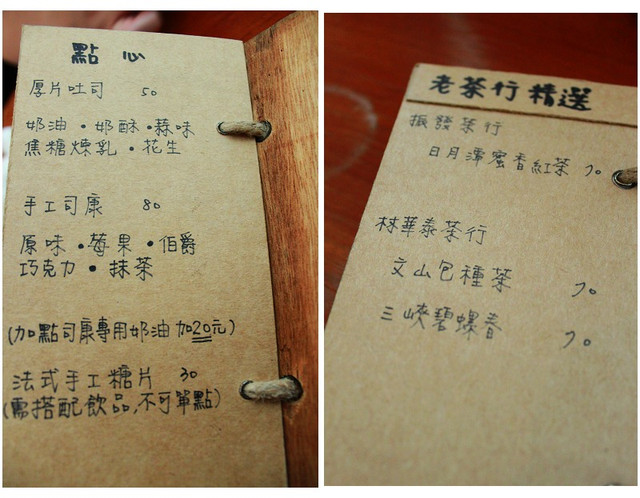 點心
厚片吐司 50
奶油・奶酥・蒜味
焦糖煉乳・花生
手工司康 80
原味・莓果・伯爵
巧克力・抹茶
(加點司康專用奶油加20元)
法式手工糖片 30
(需搭配飲品,不可單點)
老茶行精選
振發茶行
日月潭蜜香紅茶 70
林華泰茶行
文山包種茶 70
三峽碧螺春 70